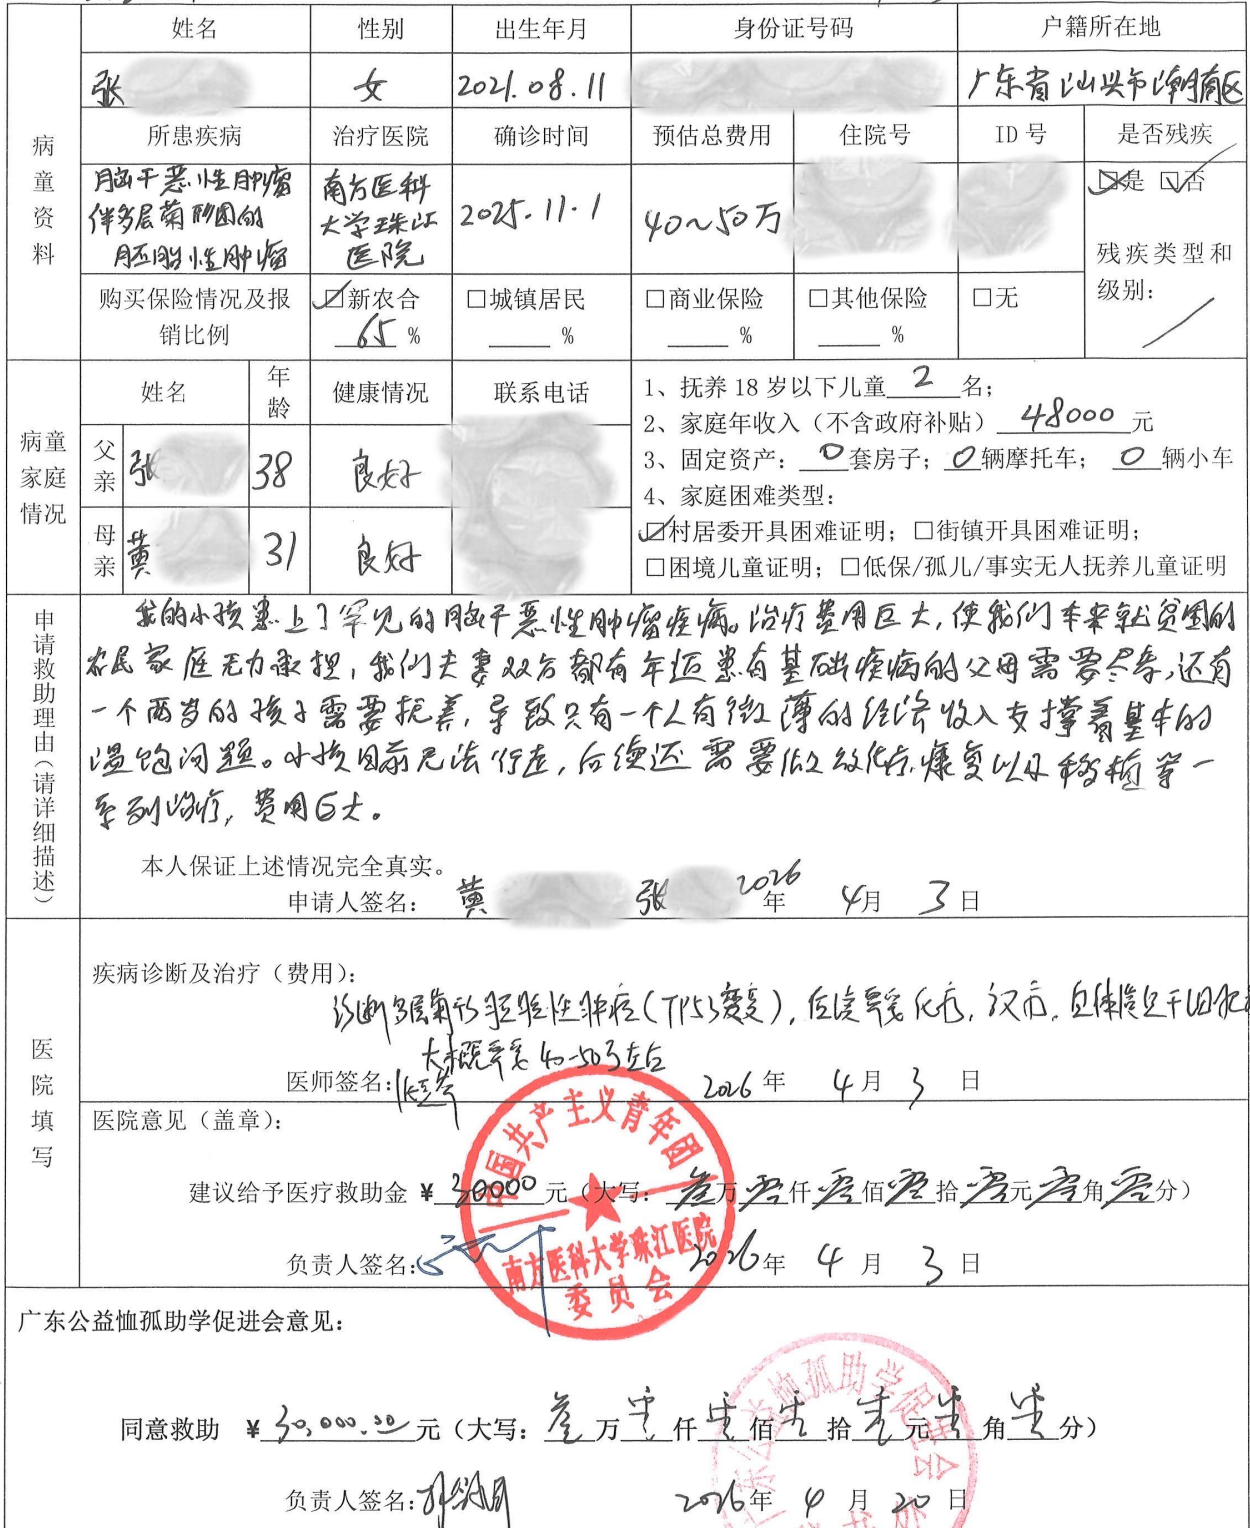 姓名 性别 出生年月 身份证号码 户籍所在地
张 女 2021.08.11 广东省汕头市潮南区
病童资料
所患疾病 治疗医院 确诊时间 预估总费用 住院号 ID号 是否残疾
脑干恶性肿瘤 南方医科 2025.11.1 40~50万 是 否
伴多层菊形团的 大学珠江
胚胎性肿瘤 医院 残疾类型和
购买保险情况及报 新农合 城镇居民 商业保险 其他保险 无 级别:
销比例 65% % % %
病童家庭情况
姓名 年龄 健康情况 联系电话
父亲 张 38 良好
母亲 黄 31 良好
1、抚养18岁以下儿童2名;
2、家庭年收入(不含政府补贴)48000元
3、固定资产:0套房子;0辆摩托车;0辆小车
4、家庭困难类型:
村居委开具困难证明;□街镇开具困难证明;
□困境儿童证明;□低保/孤儿/事实无人抚养儿童证明
申请救助理由(请详细描述)
我的小孩患上了罕见的脑干恶性肿瘤疾病。治疗费用巨大,使我们本来就贫困的
农民家庭无力承担,我们夫妻双方都有年迈患有基础疾病的父母需要尽孝,还有
一个两岁的孩子需要抚养,导致只有一个人有微薄的经济收入支撑着基本的
温饱问题。小孩目前无法行走,后续还需要做放化疗,康复以及移植等一
系列治疗,费用巨大。
本人保证上述情况完全真实。
申请人签名: 黄 张 2026年4月3日
医院填写
疾病诊断及治疗(费用):
诊断多层菊形胚胎性肿瘤(TP53变异),后续需要化疗,放疗,自体造血干细胞
大概需要40-50万左右
医师签名: 2026年4月3日
医院意见(盖章):
建议给予医疗救助金 ¥30000元(大写:叁万零仟零佰零拾零元零角零分)
负责人签名: 2026年4月3日
中国共产主义青年团
南方医科大学珠江医院
委员会
广东公益恤孤助学促进会意见:
同意救助 ¥30,000.00元(大写:叁万零仟零佰零拾零元零角零分)
负责人签名: 2026年4月20日
广东公益恤孤助学促进会